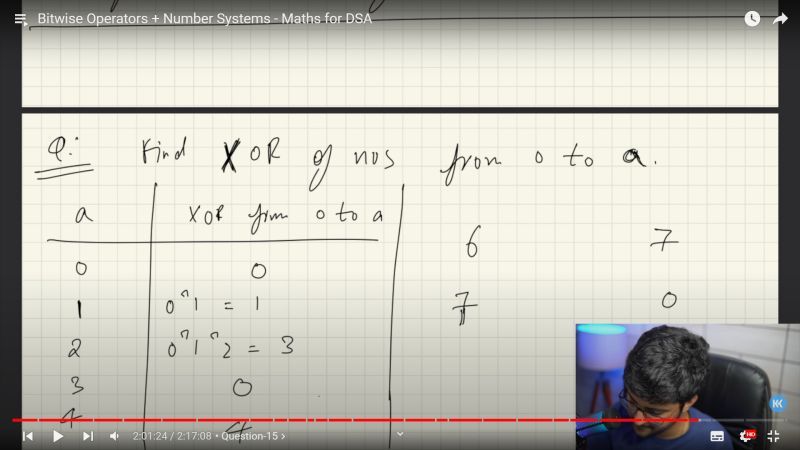 Bitwise Operators + Number Systems - Maths for DSA
Q: Find XOR of nos from 0 to a.
a XOR from 0 to a
6 7
0 0
1 0^1 = 1
7 0
2 0^1^2 = 3
3 0
4 4
2:01:24 / 2:17:08 • Question-15 ›
HD